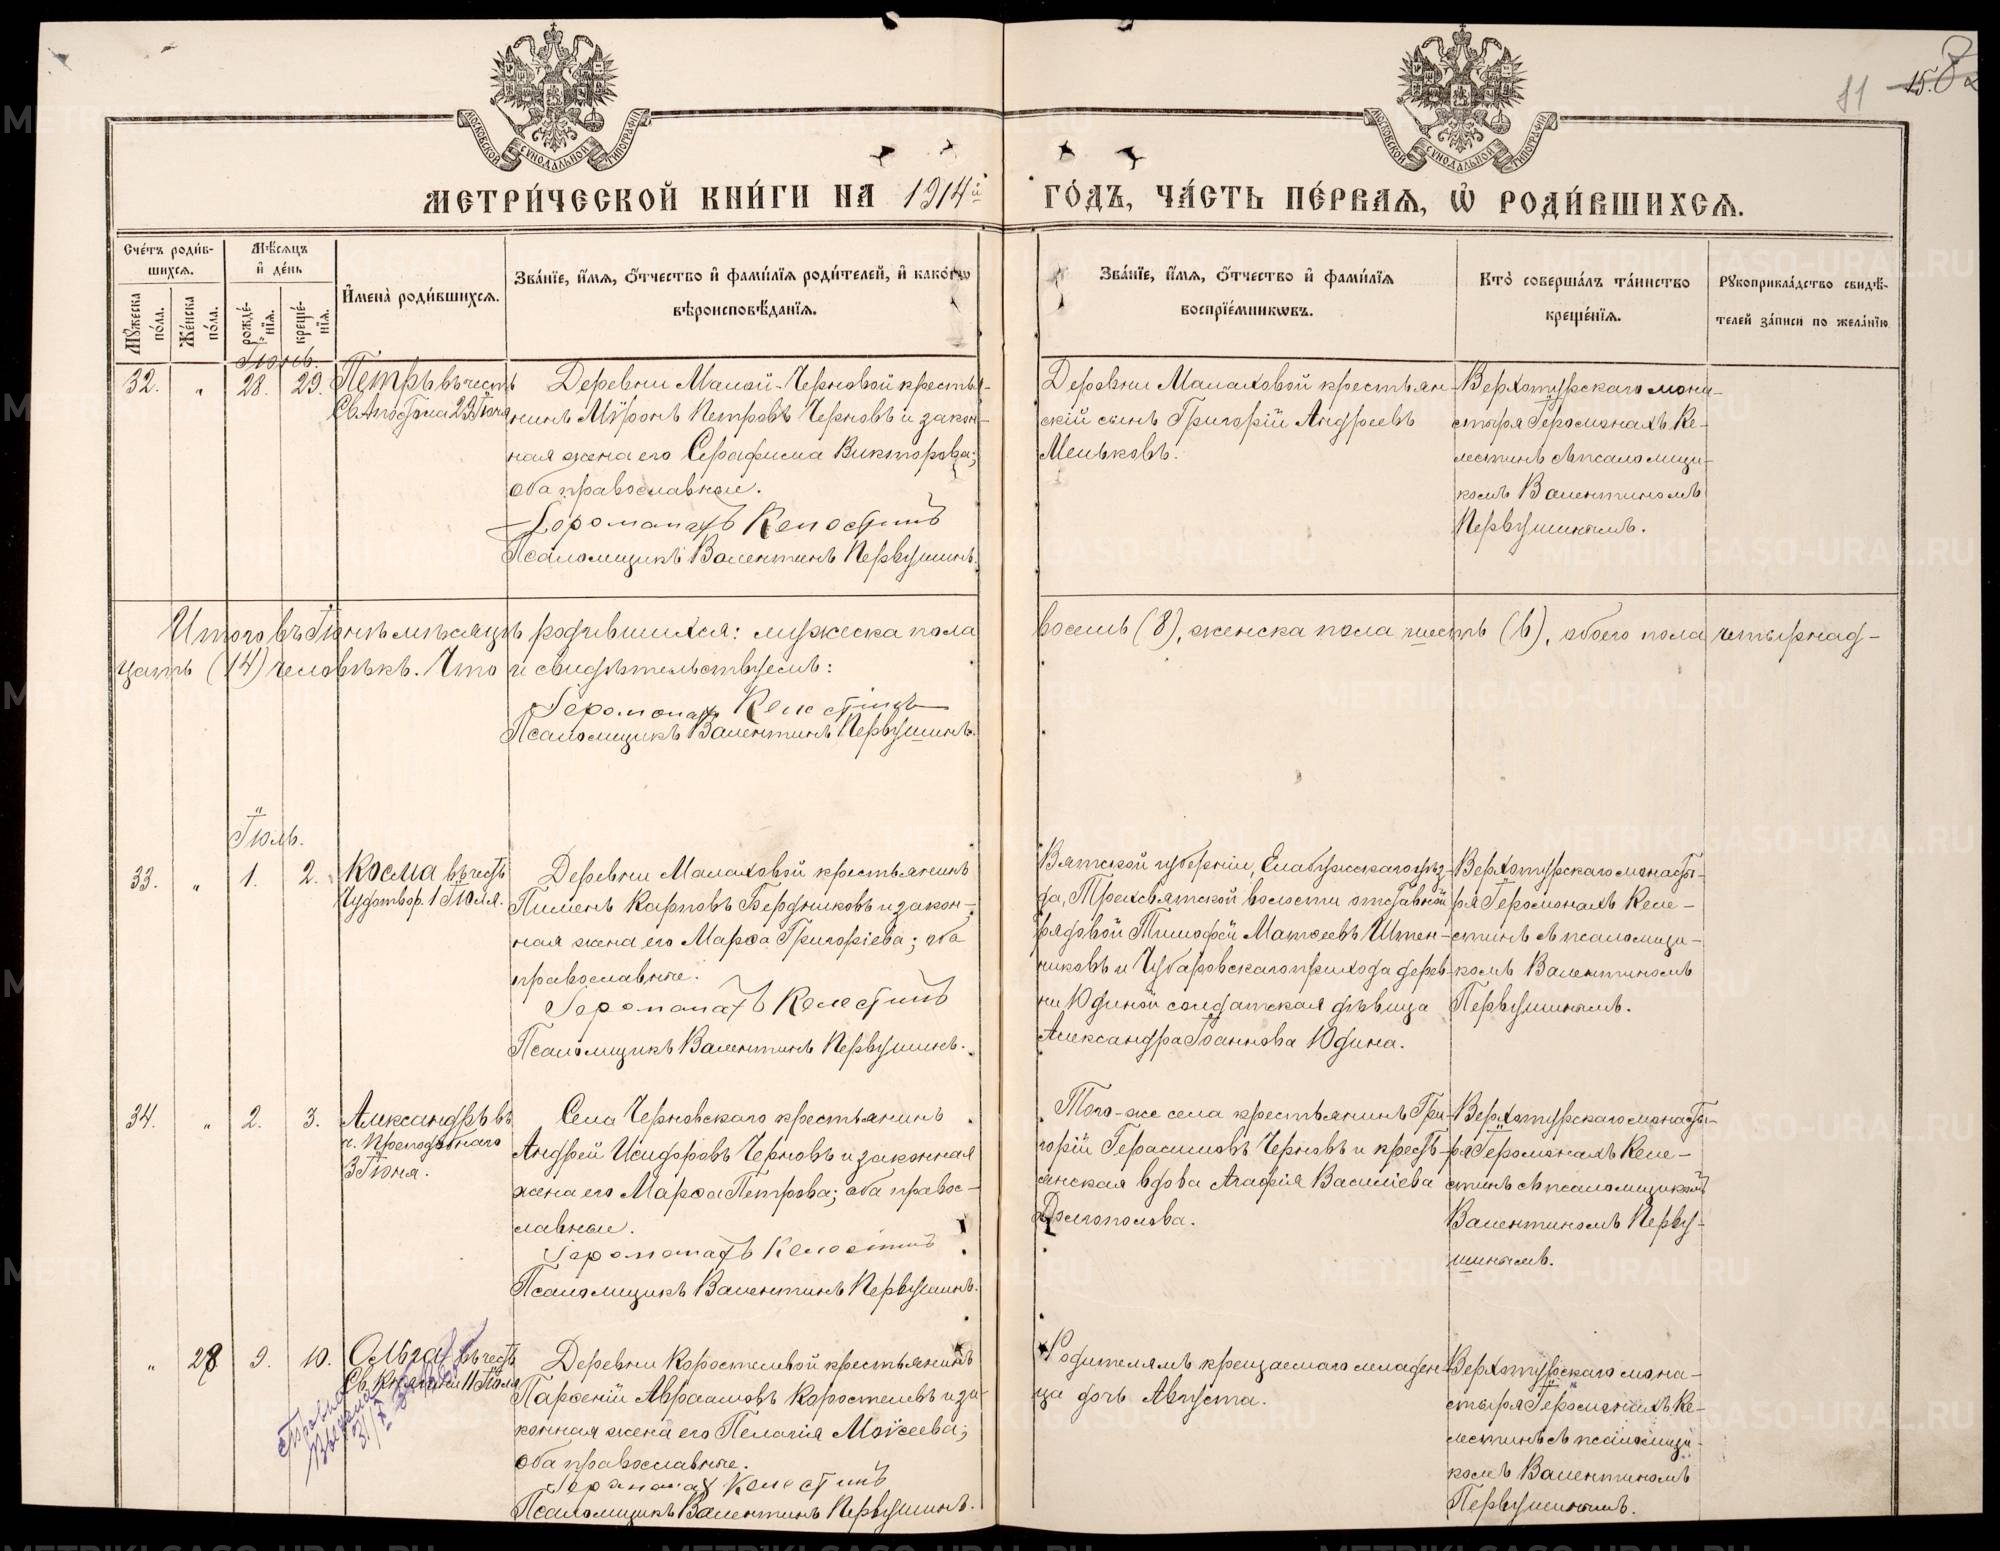 МОСКОВСКОЙ СѴНОДАЛЬНОЙ ТИПОГРАФІИ
МОСКОВСКОЙ СѴНОДАЛЬНОЙ ТИПОГРАФІИ
11 15.
МЕТРИ́ЧЕСКОЙ КНИ́ГИ НА 1914й ГО́ДЪ, ЧА́СТЬ ПЕ́РВАЯ, Ѡ РОДИ́ВШИХСЯ.
Сче́тъ роди́в-
шихся.
Мѣ́сяцъ
и де́нь
Мꙋ́жеска по́ла.
Же́нска по́ла.
рожде́-нїя.
креще́-нїя.
Имена̀ роди́вшихся.
Зва́нїе, и́мя, ѻ́тчество и фами́лїя роди́телей, и како́гѡ
вѣроисповѣ́данїя.
Зва́нїе, и́мя, ѻ́тчество и фами́лїя
воспрїе́мникѡвъ.
Кто̀ соверша́лъ та́инство
креще́нїя.
Рꙋкоприкла́дство свидѣ́-
телей за́писи по жела́нїю
Іюнь.
32. " 28. 29.
Петръ въ честь
Св. Апостола 29 Іюня
Деревни Малой-Черновой крестья-
нинъ Мѵронъ Петровъ Черновъ и закон-
ная жена его Серафима Викторова;
оба православные.
Іеромонахъ Келестинъ
Псаломщикъ Валентинъ Первушинъ.
Деревни Малаховой крестьян-
скій сынъ Григорій Андреевъ
Меньковъ.
Верхотурскаго мона-
стыря Іеромонахъ Ке-
лестинъ съ псаломщи-
комъ Валентиномъ
Первушинымъ.
Итого въ Іюнѣ мѣсяцѣ родившихся: мужеска пола восемь (8), женска пола шесть (6), обоего пола четырнад-
цать (14) человѣкъ. Что и свидѣтельствуемъ:
Іеромонахъ Келестинъ
Псаломщикъ Валентинъ Первушинъ.
Іюль.
33. " 1. 2.
Косма въ честь
Чудотвор. 1 Іюля.
Деревни Малаховой крестьянинъ
Пименъ Карповъ Бердниковъ и закон-
ная жена его Марѳа Григоріева; оба
православные.
Іеромонахъ Келестинъ
Псаломщикъ Валентинъ Первушинъ.
Вятской губерніи, Елабужскаго уѣз-
да, Трехсвятской волости отставной
рядовой Тимофей Матѳеевъ Штен-
никовъ и Чубаровскаго прихода дерев-
ни Юдиной солдатская дѣвица
Александра Іоаннова Юдина.
Верхотурскаго монасты-
ря Іеромонахъ Келе-
стинъ съ псаломщи-
комъ Валентиномъ
Первушинымъ.
34. " 2. 3.
Александръ въ
ч. Преподобнаго
3 Іюня.
Села Черновскаго крестьянинъ
Андрей Исидоровъ Черновъ и законная
жена его Марѳа Петрова; оба право-
славные.
Іеромонахъ Келестинъ
Псаломщикъ Валентинъ Первушинъ.
Того-же села крестьянинъ Гри-
горій Герасимовъ Черновъ и кресть-
янская вдова Агафія Василіева
Долгополова.
Верхотурскаго монасты-
ря Іеромонахъ Келе-
стинъ съ псаломщикомъ
Валентиномъ Перву-
шинымъ.
" 28 9. 10.
Ольга въ честь
Св. Княгини 11 Іюля
Деревни Коростелевой крестьянинъ
Парѳеній Авраамовъ Коростелевъ и за-
конная жена его Пелагія Моѵсеева;
оба православные.
Іеромонахъ Келестинъ
Псаломщикъ Валентинъ Первушинъ.
Родителямъ крещаемаго младен-
ца дочь Августа.
Верхотурскаго мона-
стыря Іеромонахъ Ке-
лестинъ съ псаломщи-
комъ Валентиномъ
Первушинымъ.
METRIKI.GASO-URAL.RU